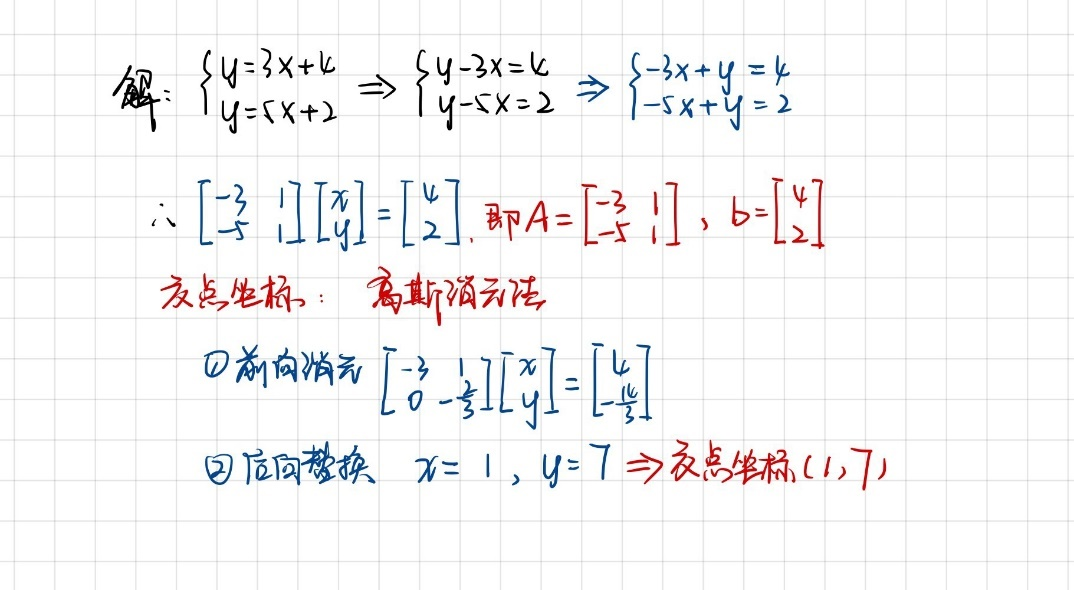 解: { y=3x+4 y=5x+2 ⇒ { y-3x=4 y-5x=2 ⇒ { -3x+y=4 -5x+y=2
∴ [-3 1; -5 1][x; y]=[4; 2], 即A=[-3 1; -5 1], b=[4; 2]
交点坐标: 高斯消元法
①前向消元 [-3 1; 0 -2/3][x; y]=[4; -14/3]
②后向替换 x=1, y=7 ⇒交点坐标(1,7)